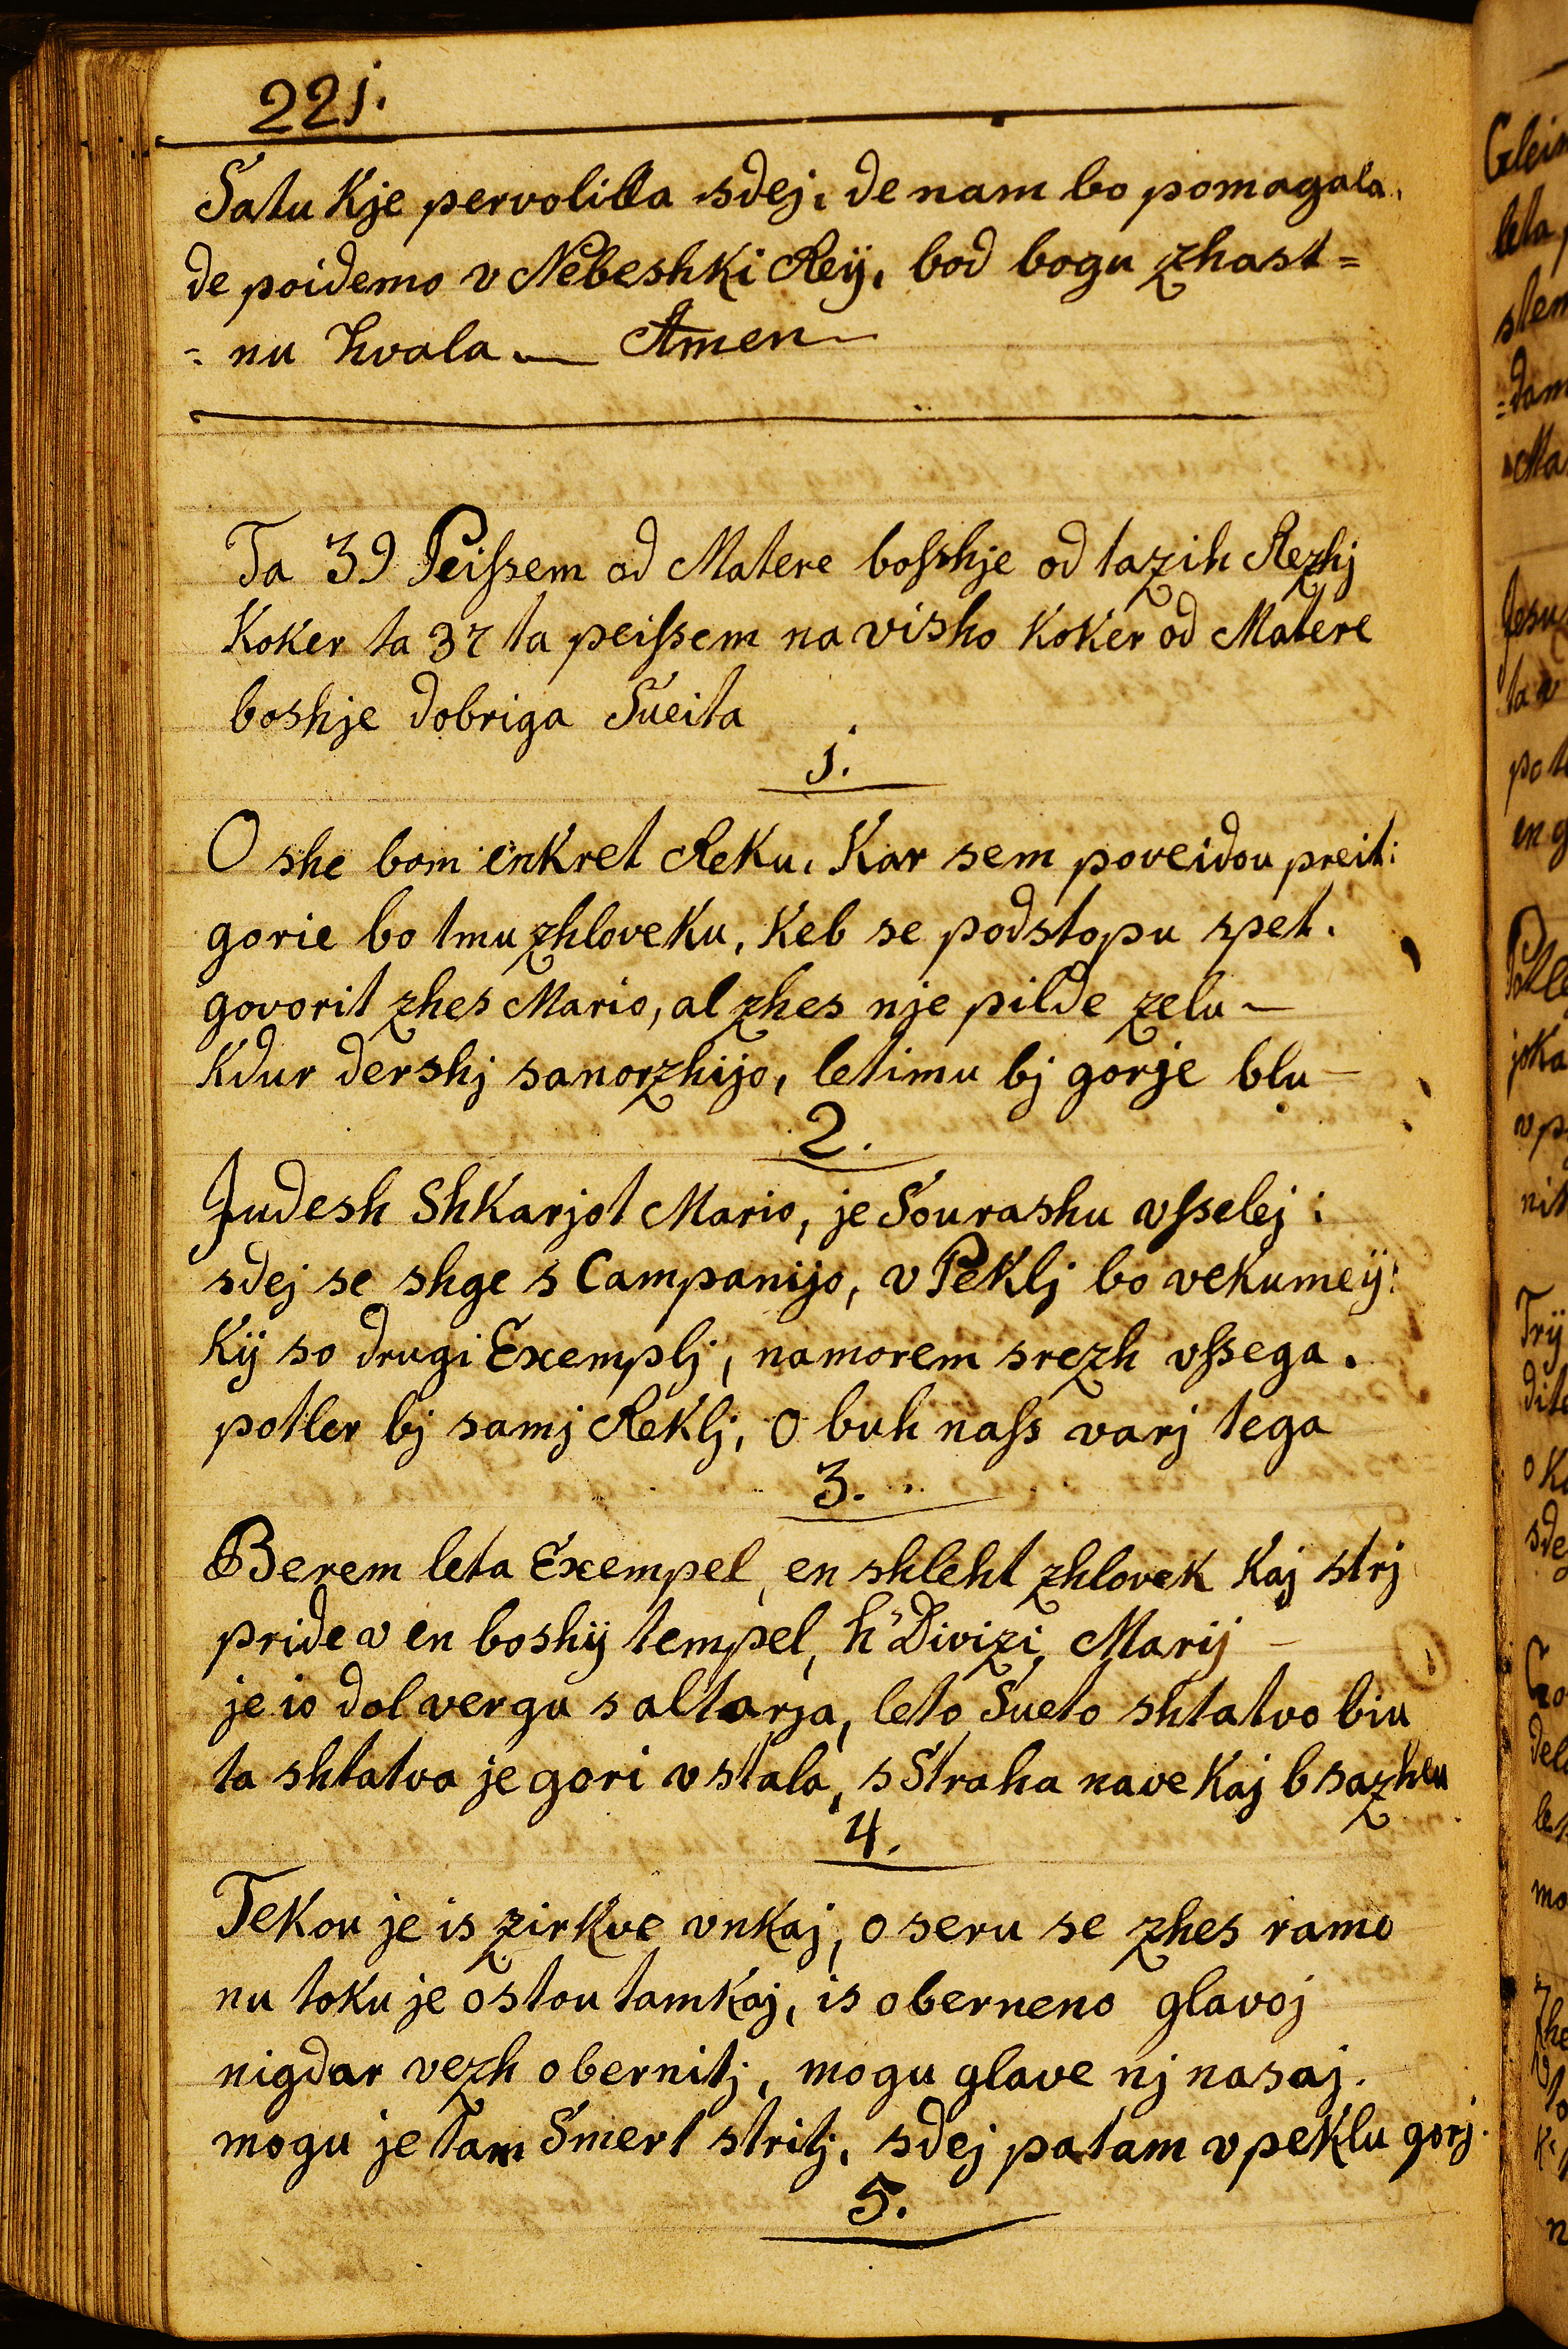 221.
Satu kje pervolilla sdej, de nam bo pomagala,
de poidemo v Nebeshki Reÿ, bod bogu zhast=
=nu hvala. Amen
Ta 39 Peiſsem od Matere boſshje od tazih Rezhj
Koker ta 37 ta peiſsem na visho Koker od Matere
boshje dobriga Sueita
1.
O she bom enkret Reku, Kar sem poveidou preit:
gorie bo tmu zhloveku, Keb se podstopu spet.
govorit zhes Mario, al zhes nje pilde zelu –
Kdur dershj sanorzhijo, letimu bj gorje blu –
2.
Judesh Shkarjot Mario, je Sourashu vſselej :
sdej se shge s Campanijo, v Peklj bo vekumeÿ:
Kÿ so drugi Exemplj, namorem srezh vſsega.
potler bj samj Reklj, O buh naſs varj tega
3.
Berem leta Exempel, en shleht zhlovek Kaj strj
pride v en boshÿ tempel, h Divizi, Marij –
je io dol vergu s altarja, leto Sueto shtatvo biu
ta shtatva je gori vstala, s Straha nave Kaj b sazheu
4.
Tekou je is zirkve vnkaj, o seru se zhes ramo
nu toku je ostou tamkaj, is oberneno glavoj
nigdar vezh obernitj, mogu glave nj nasaj.
mogu je tam Smert stritj, sdej patam v peklu gorj.
5.